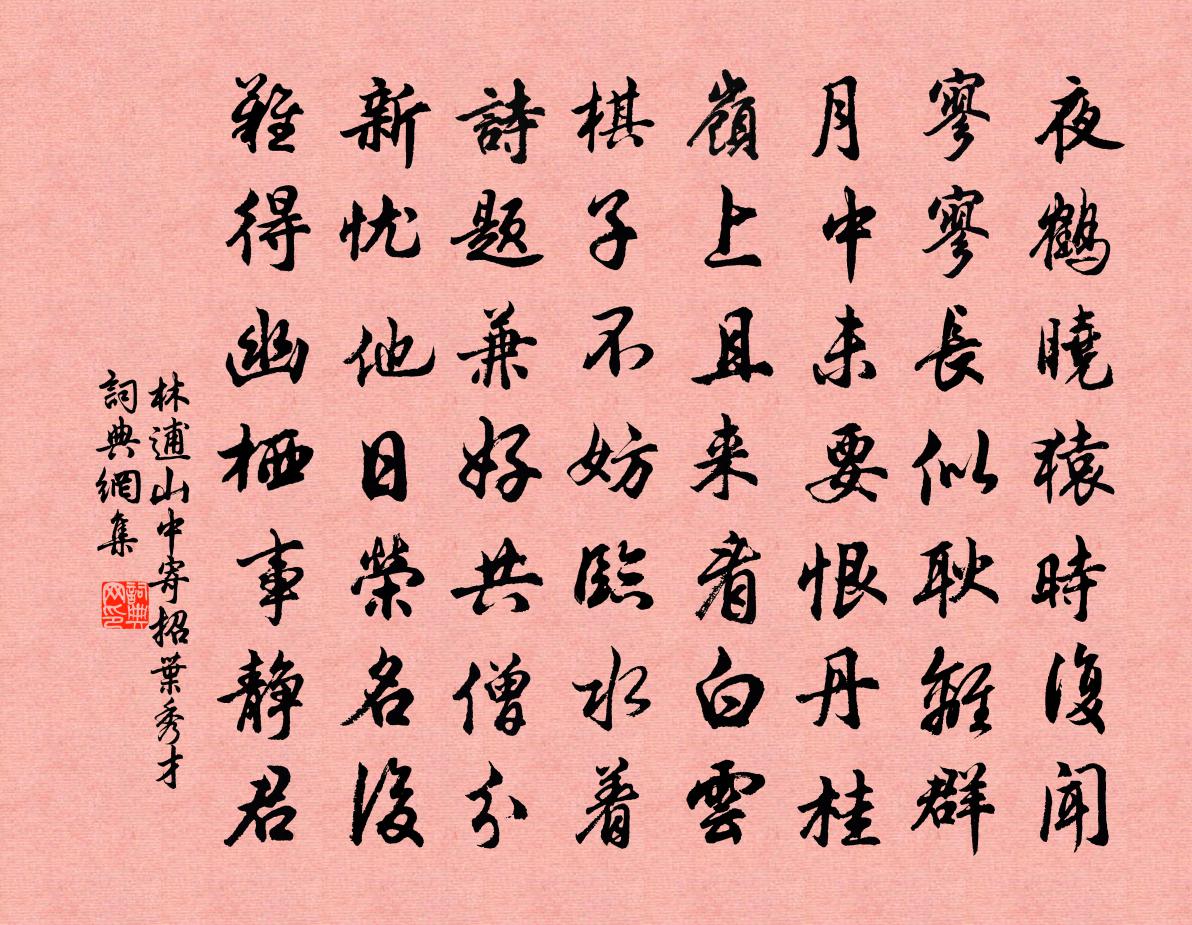 夜鶴曉猿時復聞
寥寥長似耿離群
月中未要恨丹桂
嶺上且来看白雲
棋子不妨臨水着
詩題兼好共僧分
新忧他日榮名後
難得幽栖事静君
林逋山中寄招葉秀才
詞典網集
詞典网印